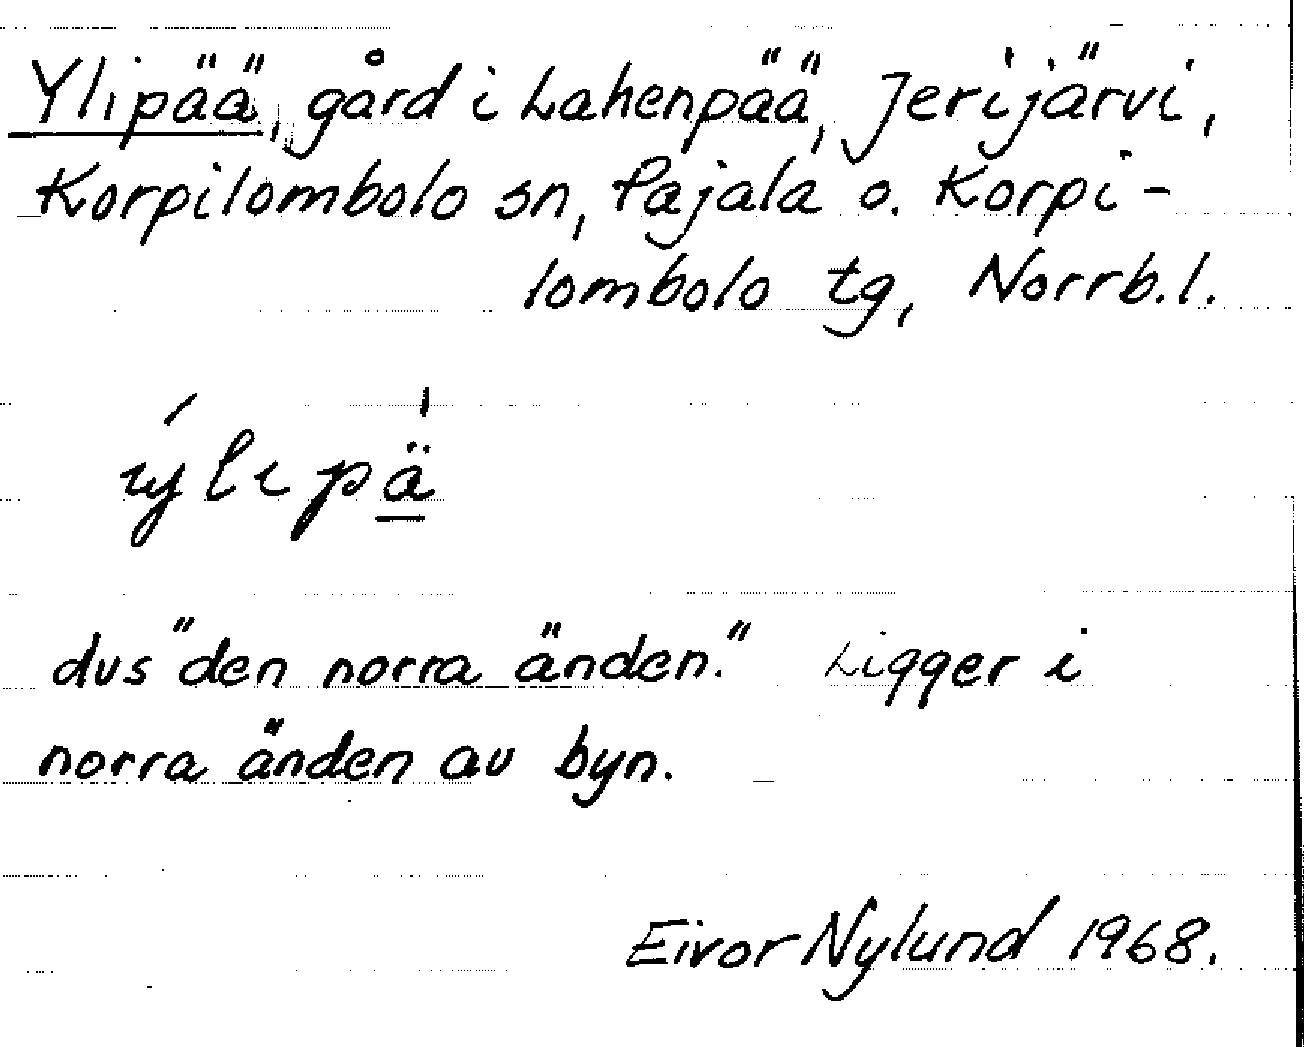 Ylipää, gård i Lahenpää, Jerijärvi,
Korpilombolo sn, Pajala o. Korpi-
lombolo tg, Norrb.l.
ýlιpä̱
dvs "den norra änden." Ligger i
norra änden av byn.
Eivor Nylund 1968.